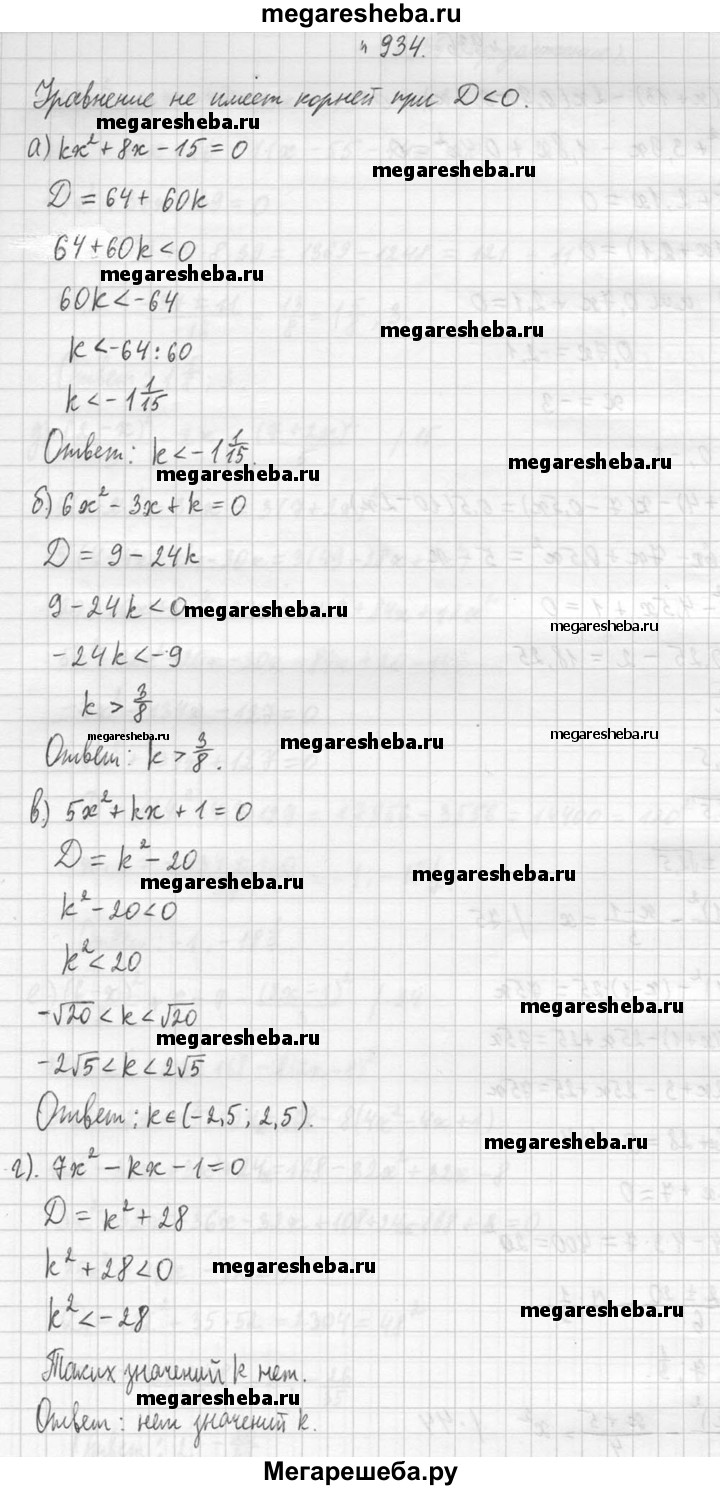 megaresheba.ru
n 934.
Уравнение не имеет корней при D<0.
megaresheba.ru
а) kx² + 8x - 15 = 0
megaresheba.ru
D = 64 + 60k
64 + 60k < 0
megaresheba.ru
60k < -64
megaresheba.ru
k < -64 : 60
k < -1 1/15
Ответ: k < -1 1/15.
megaresheba.ru
megaresheba.ru
б) 6x² - 3x + k = 0
D = 9 - 24k
9 - 24k < 0
megaresheba.ru
megaresheba.ru
-24k < -9
k > 3/8
megaresheba.ru
megaresheba.ru
megaresheba.ru
Ответ: k > 3/8.
в) 5x² + kx + 1 = 0
D = k² - 20
megaresheba.ru
megaresheba.ru
k² - 20 < 0
k² < 20
megaresheba.ru
-√20 < k < √20
megaresheba.ru
-2√5 < k < 2√5
Ответ: k ∈ (-2,5; 2,5).
megaresheba.ru
г). 7x² - kx - 1 = 0
D = k² + 28
k² + 28 < 0
megaresheba.ru
k² < -28
megaresheba.ru
Таких значений k нет.
megaresheba.ru
Ответ: нет значений k.
Мегарешеба.ру